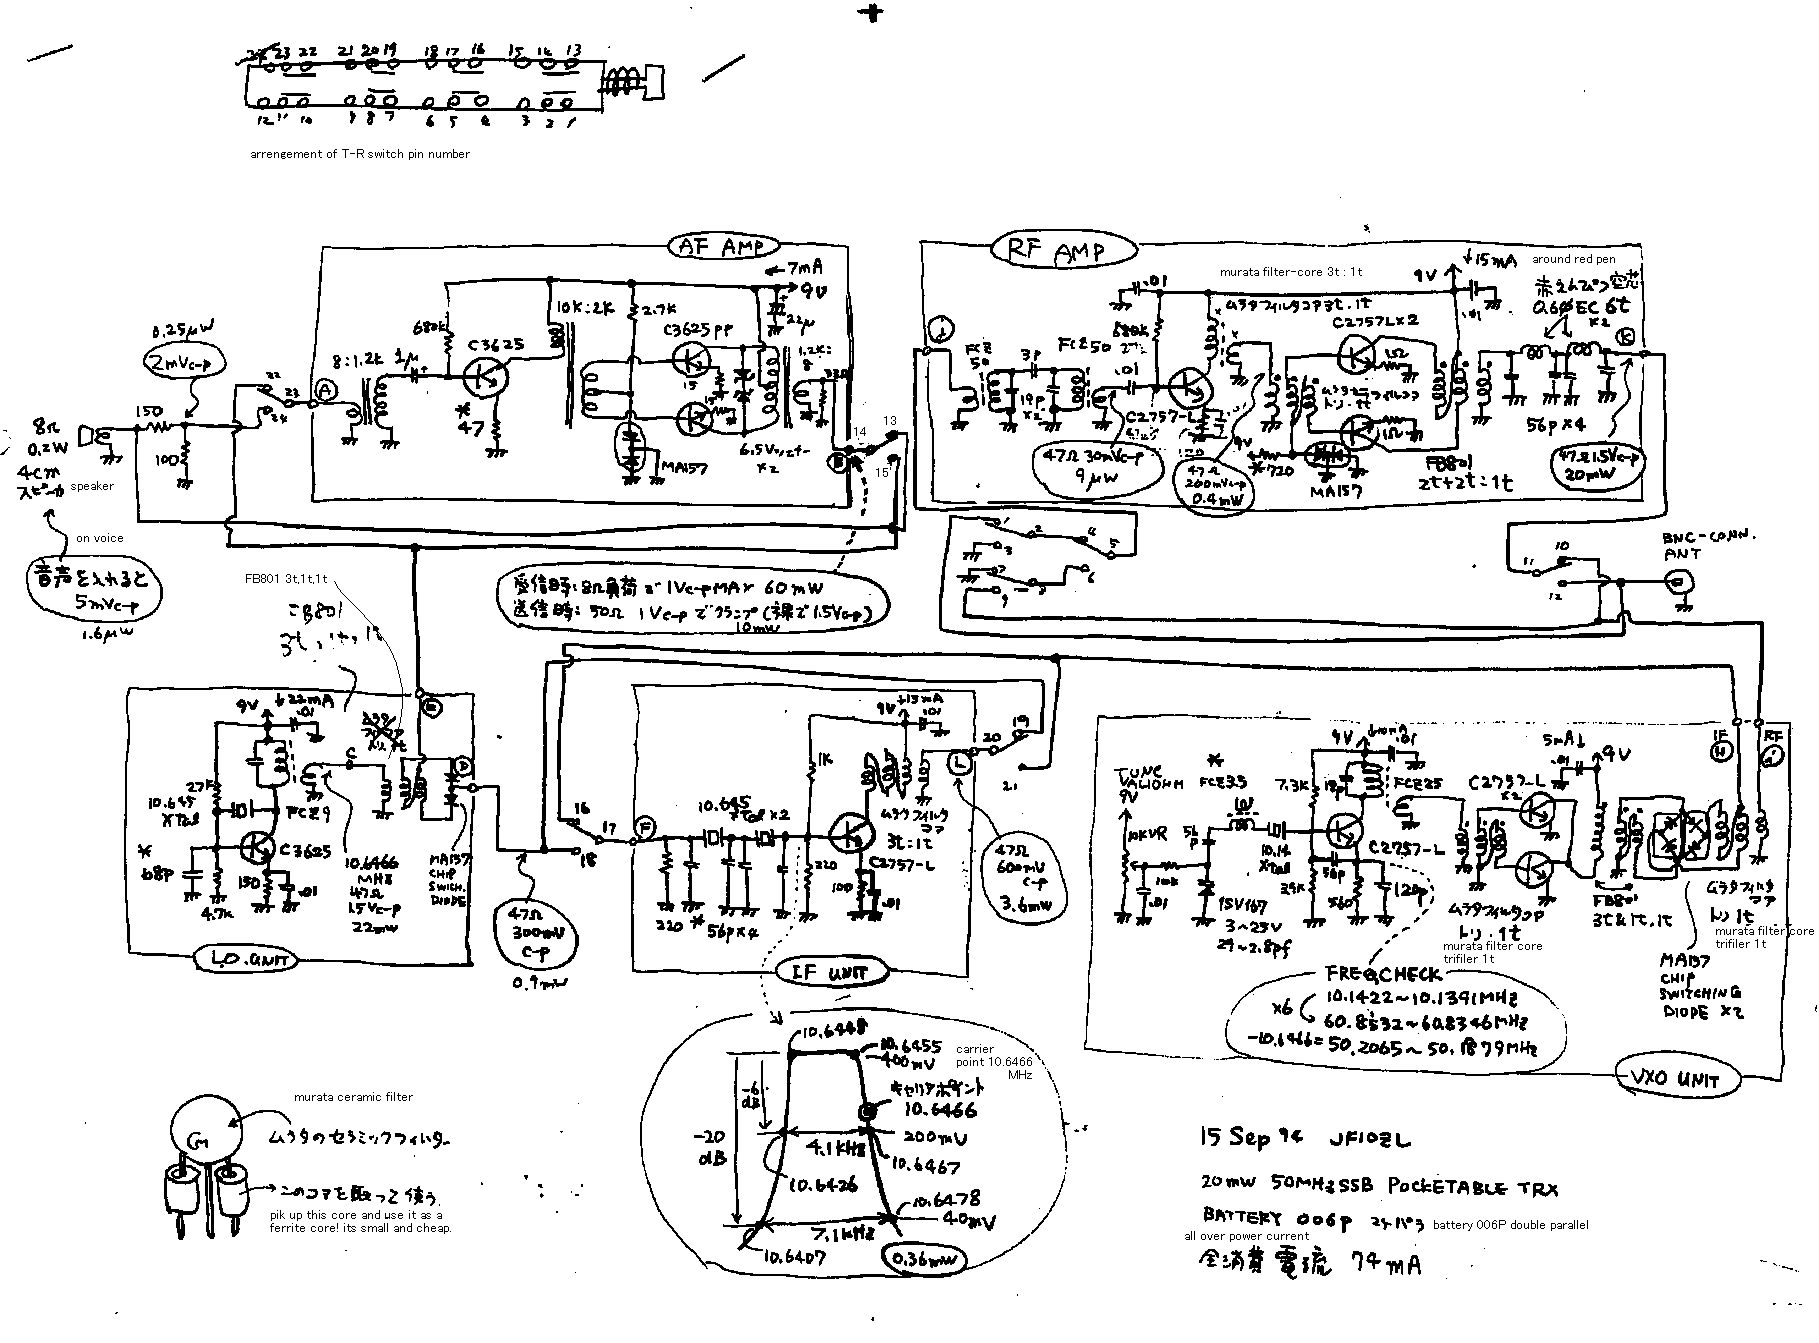 23 22 21 20 19 18 17 16 15 14 13
12 11 10 9 8 7 6 5 4 3 2 1
arrengement of T-R switch pin number
AF AMP
← 7mA
9V
22μ
10K:2K
2.7K
680K
C3625
C3625PP
8:1.2K
1μ
*
47
15
15
1.2K:
8
33Ω
MA157
6.5Vツェナー
×2
A
B
0.25μW
2mVc-p
150
100
22
23
24
8Ω
0.2W
4cm
スピーカ
speaker
on voice
音声を入れると
5mVc-p
1.6μW
13
14
15
受信時:8Ω負荷で1Vc-pMAX 60mW
送信時:50Ω 1Vc-pでクランプ(裸で1.5Vc-p)
10mW
RF AMP
murata filter-core 3t : 1t
ムラタフィルタコア3t:1t
↓15mA
9V
.01
around red pen
赤えんぴつ空芯
0.6φEC 6t
×2
.01
680K
C2757L×2
1Ω
1Ω
FCZ
50
3P
FCZ50
19P
×2
.01
C2757-L
J
K
47Ω 30mVc-p
9μW
47Ω
200mVc-p
0.4mW
9V
*720
MA157
FB801
2t+2t:1t
56P×4
47Ω1.5Vc-p
20mW
1
2
3
4
5
6
7
8
9
10
11
12
BNC-CONN.
ANT
FB801 3t,1t,1t
FB801
3t,1t,1t
9V
↓22mA
.01
27K
10.645
XTal
FCZ9
C3625
*
68P
150
.01
4.7K
10.6466
MHz
47Ω
1.5Vc-p
22mW
MA157
CHIP
SWITCH.
DIODE
LO.UNIT
47Ω
300mV
c-p
0.9mW
16
17
18
19
20
21
9V
↓13mA
.01
1K
F
L
10.645
XTal ×2
ムラタフィルタ
コア
3t:1t
C2757-L
220
100
.01
220
*
56P×4
IF UNIT
47Ω
600mV
c-p
3.6mW
TUNE
VARIOHM
9V
10KVR
10K
.01
*
FCZ25
10t
56
P
10.14
XTal
1SV167
3~25V
29~2.8pf
7.3K
9V
↓10mA
.01
18P
FCZ25
C2757-L
39K
56P
560
120P
5mA↓
.01
9V
C2757-L
×2
IF
H
RF
I
ムラタフィルタコア
トリ.1t
murata filter core
trifiler 1t
FB801
3t&1t.1t
ムラタフィルタ
コア
トリ 1t
murata filter core
trifiler 1t
MA157
CHIP
SWITCHING
DIODE ×2
FREQ,CHECK
10.1422~10.1391MHz
×6
60.8532~60.8346MHz
-10.6466=50.2065~50.1879MHz
VXO UNIT
10.6448
10.6455
400mV
carrier
point 10.6466
MHz
キャリアポイント
10.6466
-6
dB
-20
dB
4.1KHz
200mV
10.6467
10.6426
10.6478
40mV
7.1KHz
10.6407
0.36mW
murata ceramic filter
ムラタのセラミックフィルター
CM
このコアを取って使う
pik up this core and use it as a
ferrite core! its small and cheap.
15 Sep 94 JF1OZL
20mW 50MHzSSB POCKETABLE TRX
BATTERY 006P 2ケパラ
battery 006P double parallel
all over power current
全消費電流 74mA